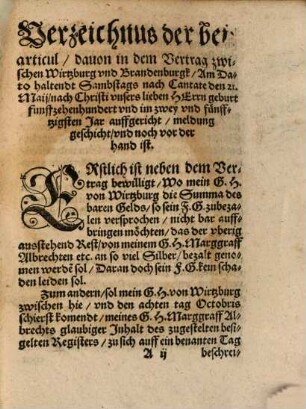 Verzeichnus der bei-
articul / dauon in dem Vertrag zwi-
schen Wirtzburg vnd Brandenburgk / Am Da-
to haltendt Sambstags nach Cantate den 21.
Maij / nach Christi vnsers lieben HErrn geburt
funfftzehenhundert vnd im zwey vnd fünff-
tzigsten Jar auffgericht / meldung
geschicht / vnd noch vor der
hand ist.
ERstlich ist neben dem Ver-
trag bewilligt / Wo mein G. H.
von Wirtzburg die Summa des
baren Gelds / so sein F. G. zubeza-
len versprochen / nicht bar auff-
bringen möchten / das der vberig
ausstehend Rest / von meinem G. H. Marggraff
Albrechten etc. an so viel Silber / bezalt geno-
men werdē sol / Daran doch sein F. G. kein scha-
den leiden sol.
Zum andern / sol mein G. H. von Wirtzburg
zwischen hie / vnd den achten tag Octobris
schierst komendt / meines G. H. Marggraff Al-
brechts glaubiger Inhalt des zugestelten besi-
gelten Registers / zu sich auff ein benanten Tag
A ij
beschrei-